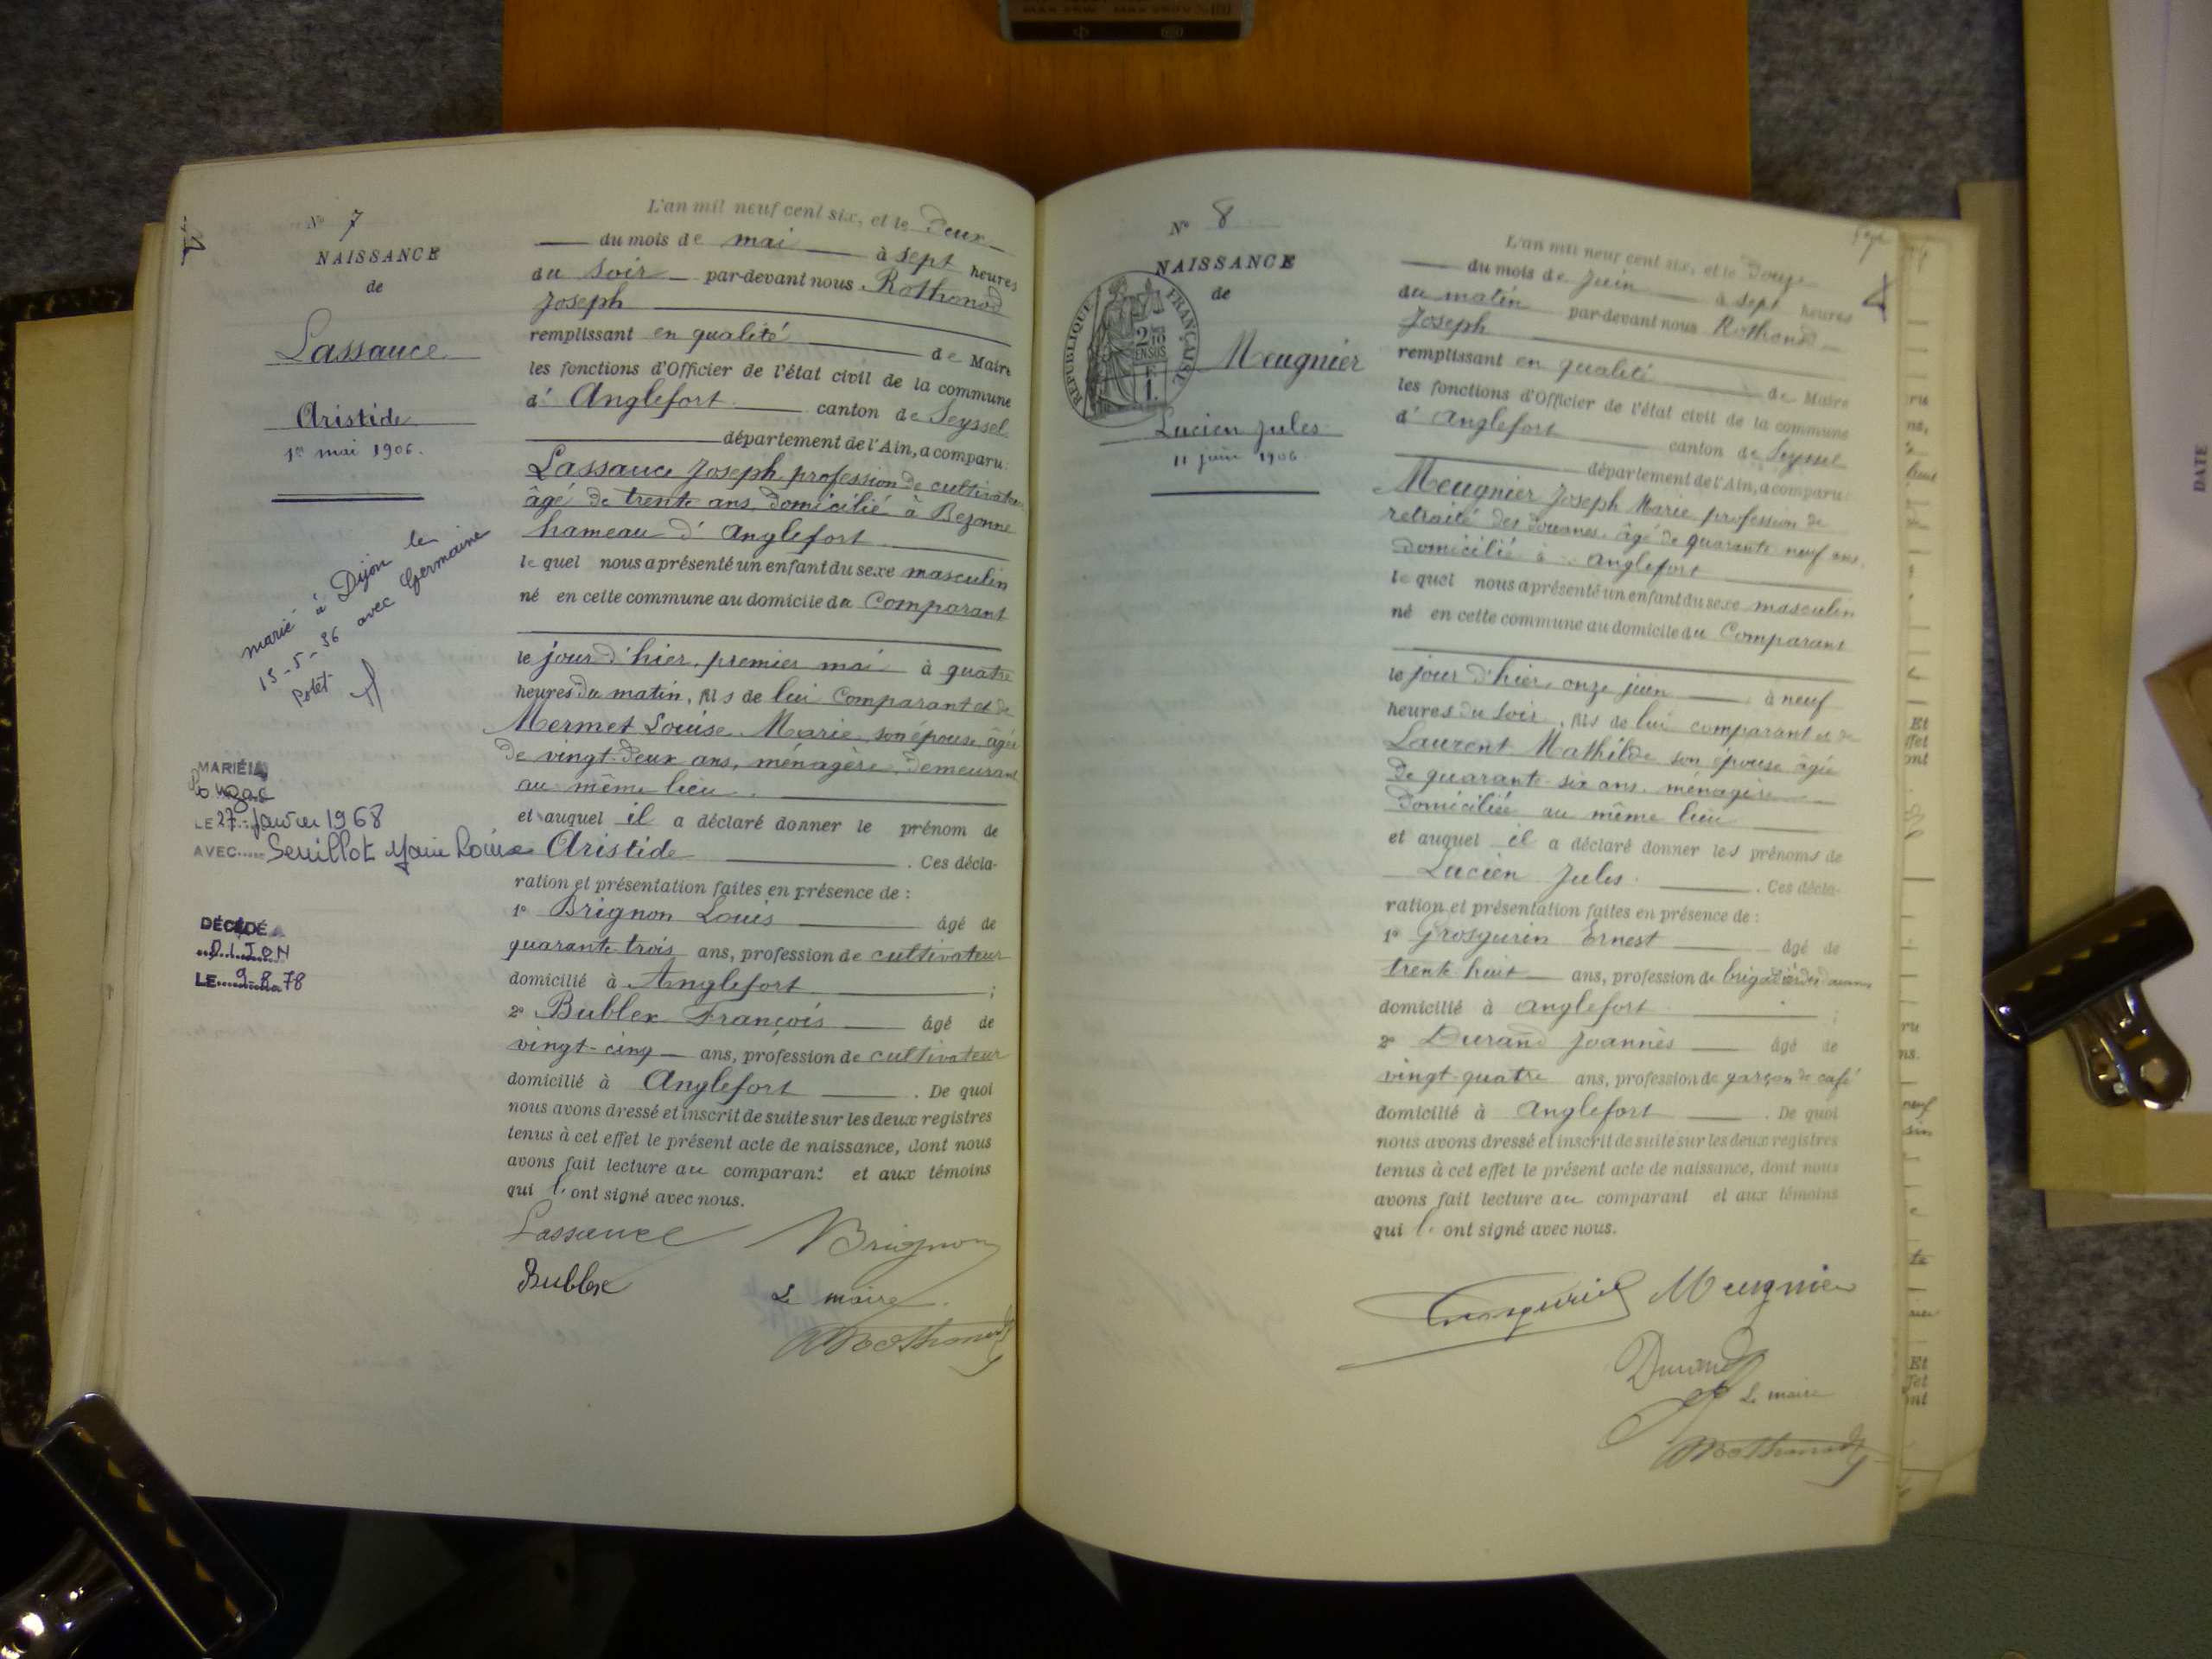 N° 7
NAISSANCE
de
Lassauce
Aristide
1er mai 1906.
marié à Dijon le
15-5-36 avec Germaine
Potet
MARIÉ
LE 27 Janvier 1968
AVEC Seuillot Marie Louise
DÉCÉDÉ A
DIJON
LE 9-8-78
L'an mil neuf cent six, et le Deux
du mois de mai à sept heures
du soir par-devant nous Rothonod
Joseph
remplissant en qualité de Maire
les fonctions d'Officier de l'état civil de la commune
d' Anglefort canton de Seyssel
département de l'Ain, a comparu
Lassauce Joseph, profession de cultivateur
âgé de trente ans, domicilié à Bezonne
hameau d' Anglefort
lequel nous a présenté un enfant du sexe masculin
né en cette commune au domicile du Comparant
le jour d'hier, premier mai à quatre
heures du matin, fils de lui Comparant et de
Mermet Louise Marie, son épouse, âgée
de vingt-deux ans, ménagère, demeurant
au même lieu.
et auquel il a déclaré donner le prénom de
Aristide . Ces décla-
ration et présentation faites en présence de :
1° Brignon Louis âgé de
quarante trois ans, profession de cultivateur
domicilié à Anglefort ;
2° Bublex François âgé de
vingt-cinq ans, profession de cultivateur
domicilié à Anglefort . De quoi
nous avons dressé et inscrit de suite sur les deux registres
tenus à cet effet le présent acte de naissance, dont nous
avons fait lecture au comparant et aux témoins
qui l'ont signé avec nous.
Lassauce Brignon
Bublex Le maire
Rothonod
N° 8
NAISSANCE
de
RÉPUBLIQUE FRANÇAISE
2/10 EN SUS
Meugnier
Lucien Jules
11 juin 1906
L'an mil neuf cent six, et le Douze
du mois de Juin à sept heures
du matin par-devant nous Rothonod
Joseph
remplissant en qualité de Maire
les fonctions d'Officier de l'état civil de la commune
d' Anglefort canton de Seyssel
département de l'Ain, a comparu
Meugnier Joseph Marie, profession de
retraité des douanes, âgé de quarante neuf ans,
domicilié à Anglefort
lequel nous a présenté un enfant du sexe masculin
né en cette commune au domicile du Comparant
le jour d'hier, onze juin à neuf
heures du soir, fils de lui comparant et de
Laurent Mathilde son épouse âgée
de quarante-six ans, ménagère
domiciliée au même lieu
et auquel il a déclaré donner les prénoms de
Lucien Jules . Ces décla-
ration et présentation faites en présence de :
1° Grosgurin Ernest âgé de
trente huit ans, profession de brigadier des douanes
domicilié à Anglefort ;
2° Durand Joannès âgé de
vingt-quatre ans, profession de garçon de café
domicilié à Anglefort . De quoi
nous avons dressé et inscrit de suite sur les deux registres
tenus à cet effet le présent acte de naissance, dont nous
avons fait lecture au comparant et aux témoins
qui l'ont signé avec nous.
Grosgurin Meugnier
Durand
Le maire
Rothonod
DATE